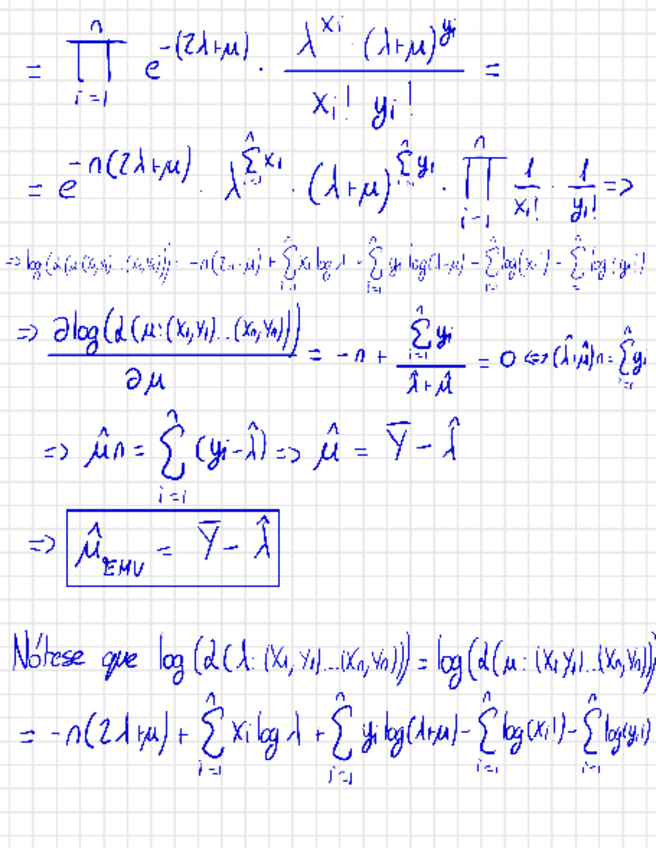 = ∏_{i=1}^{n} e^{-(2λ+μ)} · (λ^{xi} · (λ+μ)^{yi}) / (xi! yi!) =
= e^{-n(2λ+μ)} · λ^{∑_{i=1}^{n} xi} · (λ+μ)^{∑_{i=1}^{n} yi} · ∏_{i=1}^{n} 1/xi! · 1/yi! =>
=> log(L(μ:(x1,y1)...(xn,yn))) = -n(2λ+μ) + ∑_{i=1}^{n} xi log λ + ∑_{i=1}^{n} yi log(λ+μ) - ∑_{i=1}^{n} log(xi!) - ∑_{i=1}^{n} log(yi!)
=> ∂log(L(μ:(x1,y1)...(xn,yn))) / ∂μ = -n + (∑_{i=1}^{n} yi) / (λ̂+μ̂) = 0 <=> (λ̂+μ̂)n = ∑_{i=1}^{n} yi
=> μ̂n = ∑_{i=1}^{n} (yi-λ̂) => μ̂ = Y̅ - λ̂
=> μ̂_{EMV} = Y̅ - λ̂
Nótese que log(L(λ:(x1,y1)...(xn,yn))) = log(L(μ:(x1,y1)...(xn,yn)))
= -n(2λ+μ) + ∑_{i=1}^{n} xi log λ + ∑_{i=1}^{n} yi log(λ+μ) - ∑_{i=1}^{n} log(xi!) - ∑_{i=1}^{n} log(yi!)